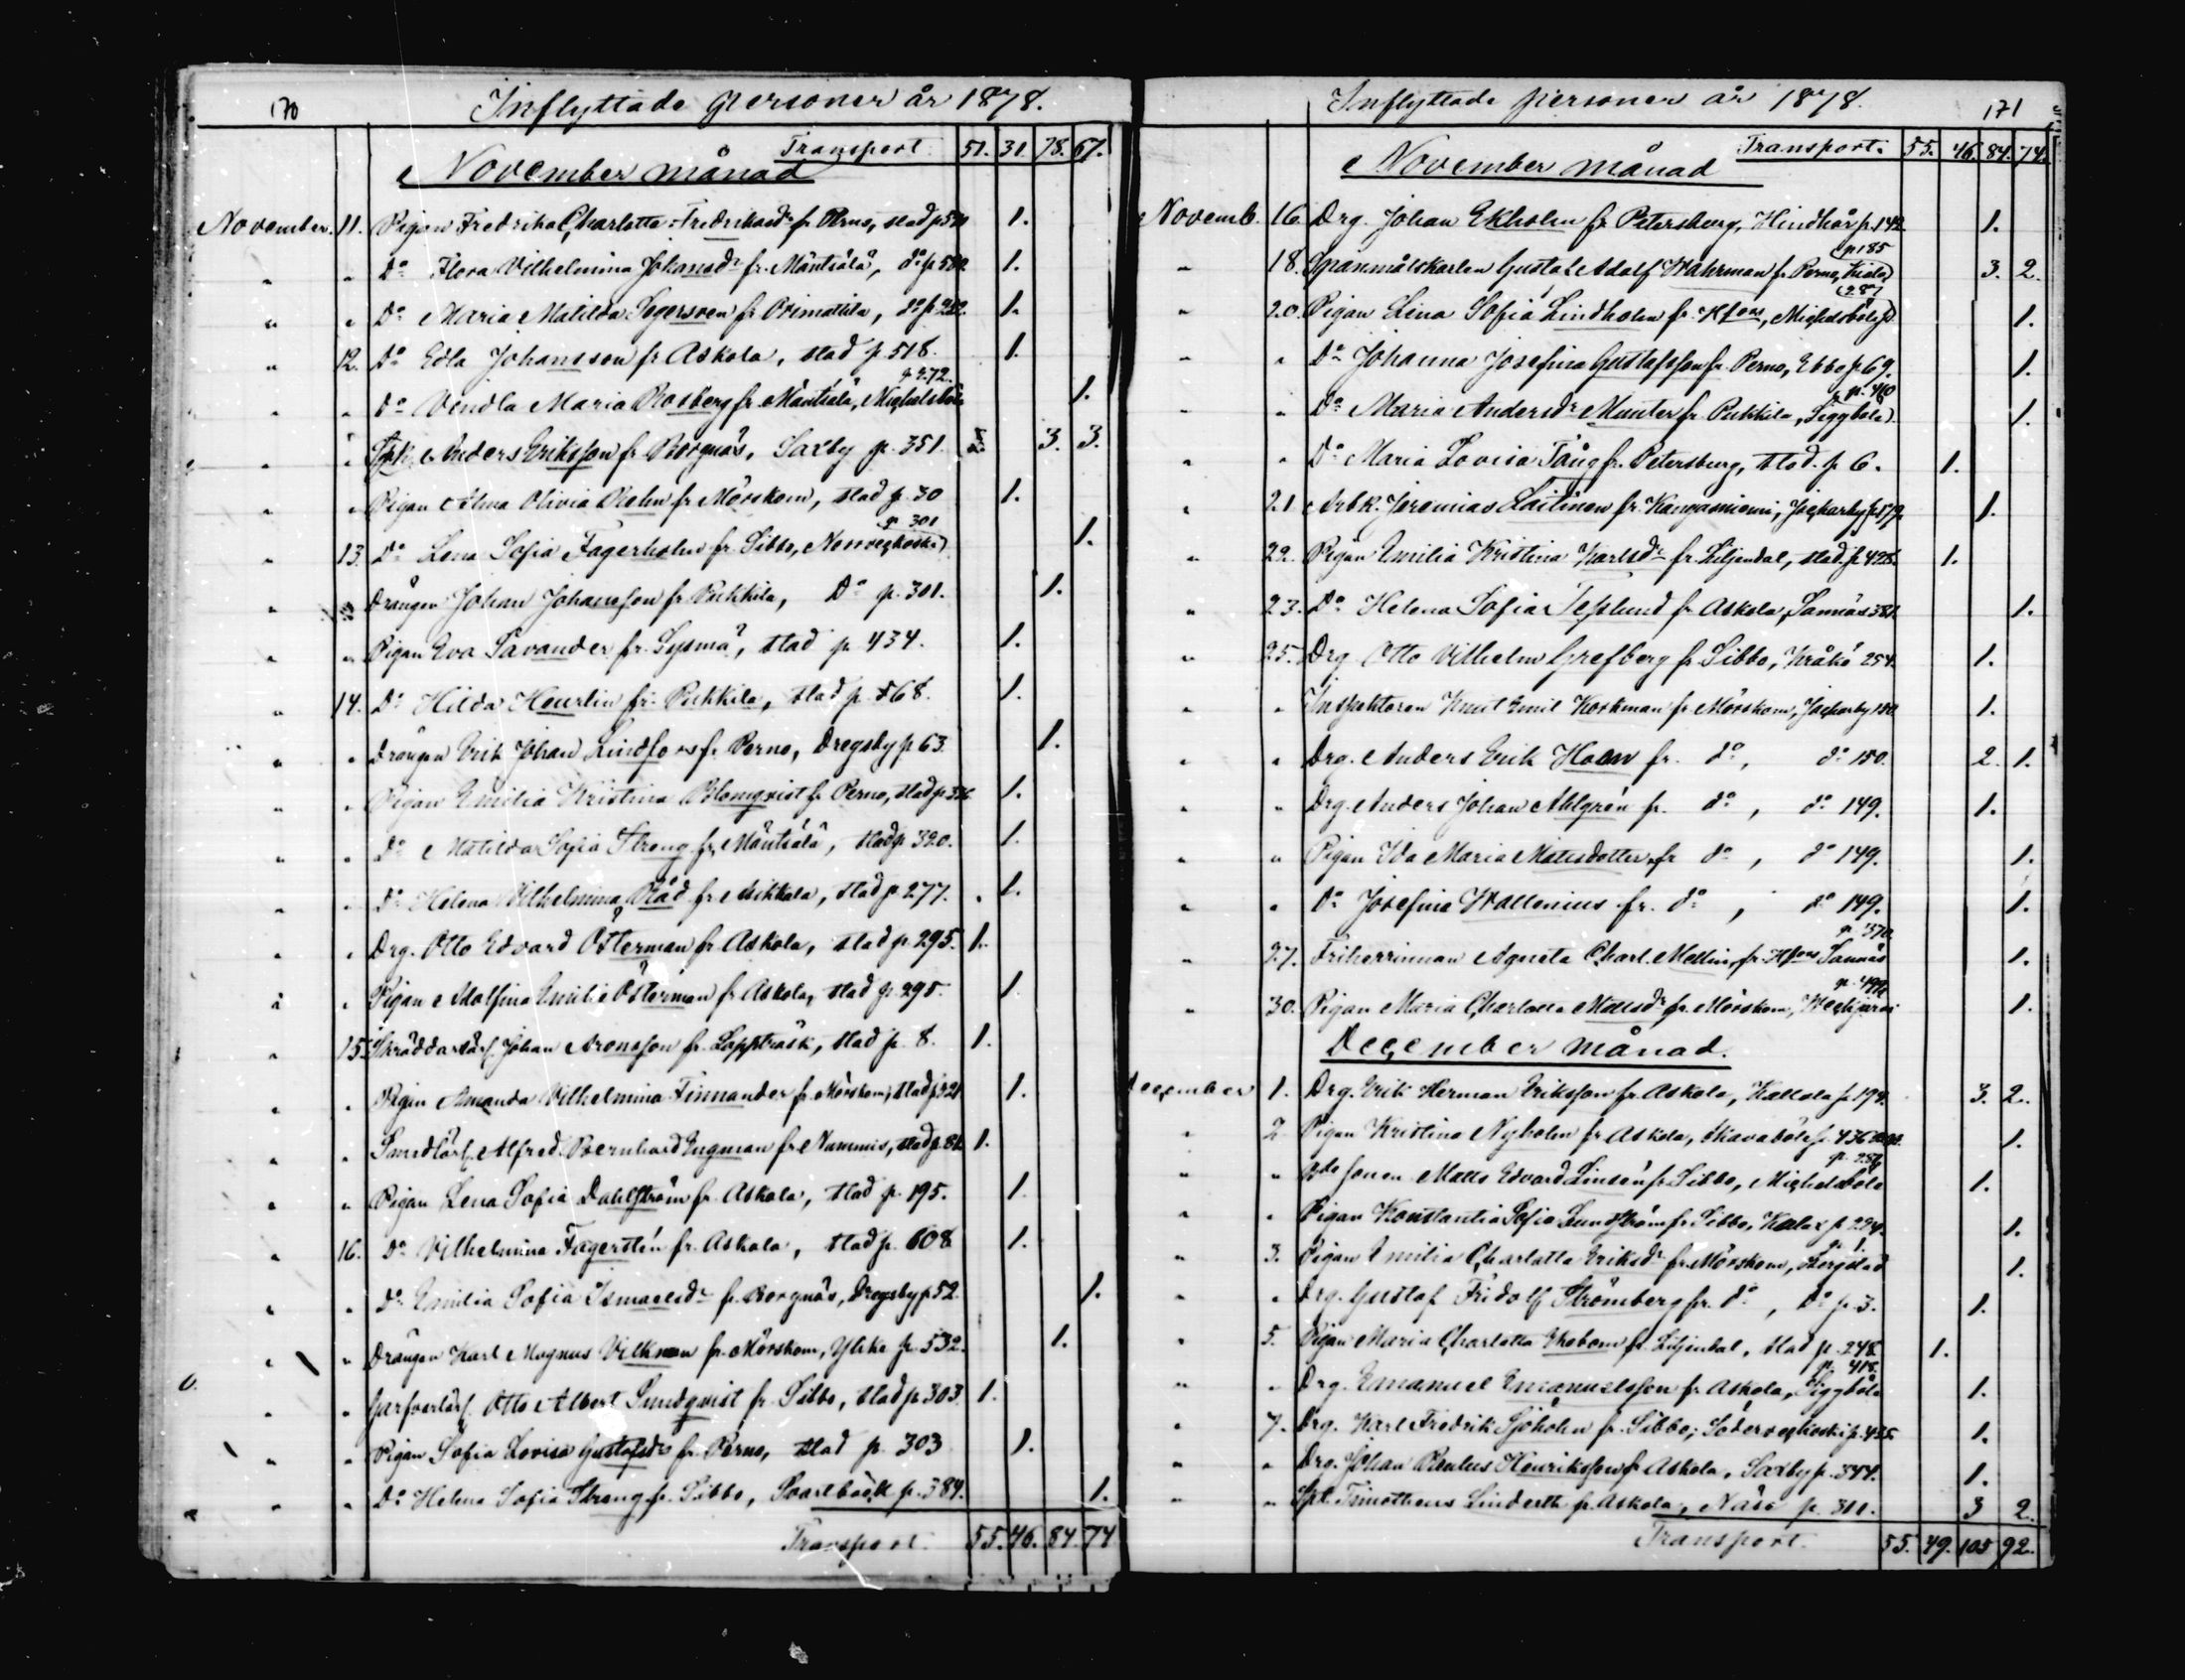 170 Inflyttade personer år 1878.
Transport 51. 31. 78. 67.
November månad
November. 11. Pigan Fredrika Charlotta Fredriksdr fr Perno, stad p
" " Do Flora Vilhelmina Johansdr fr. Mäntsälä, do p 580. 1.
" " Do Maria Matilda Segersven fr Orimattila, do p 1.
" 12. Do Edla Johansson fr Askola, stad p 518. 1.
p 272.
" " Do Vendla Maria Rosberg fr. Mäntsälä, Mighelsböle 1.
" " Anders Eriksson fr Borgnäs, Saxby p. 351. 3. 3.
" " Pigan Alma Olivia Holm fr Mörskom, stad p. 30 1.
p 301
" 13. Do Lena Sofia Fagerholm fr. Sibbo, Norrveckoski 1.
" " Drängen Johan Johansson fr Pukkila, Do p. 301. 1.
" " Pigan Eva Savander fr. Sysmä, stad p 434. 1.
" 14. Do Hilda Heurlin fr. Pukkila, stad p. 568. 1.
" " Drängen Erik Johan Lindfors fr Perno, Dregsby p 63. 1.
" " Pigan Emilia Kristina Blomqvist fr Perno, stad p. 1.
" " Do Matilda Sofia Streng fr. Mäntsälä, stad p 320. 1.
" " Do Helena Vilhelmina Råd fr Artikkala, stad p. 277. 1.
" " Drg. Otto Edvard Österman fr Askola, stad p. 295. 1.
" " Pigan Adolfina Emilie Österman fr Askola, stad p. 295. 1.
" 15. Skräddarlärl. Johan Aronsson fr. Lappträsk, stad p. 8. 1.
" " Pigan Amanda Vilhelmina Finnander fr. Mörskom, stad p 321 1.
" " Smedlärl. Alfred Bernhard Engman fr Nummis, stad p. 81. 1.
" " Pigan Lena Sofia Dahlström fr. Askola, stad p. 195. 1.
" 16. Do Vilhelmina Fagerstén fr. Askola, stad p. 608 1.
" " Do Emilia Sofia Ismaelsdr fr. Borgnäs, Dregsby p 52 1.
" " Drängen Karl Magnus Vilkman fr. Mörskom, Ylike p. 532. 1.
" " Garfvarlärl. Otto Albert Sundqvist fr. Sibbo, stad p. 303. 1.
" " Pigan Sofia Lovisa Gustafsdr fr. Perno, stad p. 303 1.
" " Do Helena Sofia Streng fr. Sibbo, Svartbäck p. 384. 1.
Transport. 55. 46. 84. 74
Inflyttade personer år 1878. 171
Transport. 55. 46. 84. 74.
November månad
Novemb. 16. Drg. Johan Ekholm fr. Petersburg, Hindhår p. 142 1.
p 185
" 18. Spanmålskarlen Gustaf Adolf Wahrman fr Perno, Kiala 3. 2.
287
" 20. Pigan Lina Sofia Lindholm fr. Hfors, Mighelsböle p. 1.
" " Do Johanna Josefina Gustafsson fr. Perno, Ebbo p 69. 1.
p. 410
" " Do Maria Andersdr Munter fr Pukkila, Siggböle 1.
" " Do Maria Lovisa Tång fr. Petersburg, stad. p 6. 1.
" 21. Arbk. Jeremias Laitinen fr. Kangasniemi, Jackarby p. 1.
" 22. Pigan Emilia Kristina Karlsdr fr. Liljendal, stad. p 428. 1.
" 23. Do Helena Sofia Teslund fr Askola, Sannäs 381. 1.
" 25. Drg Otto Vilhelm Grefberg fr Sibbo, Kråkö 254. 1.
" " Inspektoren Knut Emil Korkman fr Mörskom, Jackarby 150. 1.
" " Drg. Anders Erik Holm fr. do, do 150. 2. 1.
" " Drg. Anders Johan Ahlgrén fr. do, do 149. 1.
" " Pigan Ida Maria Matsdotter fr do, do 149. 1.
" " Do Josefina Wallenius fr. do, do 149. 1.
p. 370
" 27. Friherrinnan Agneta Charl. Mellin, fr. Hfors Sannäs 1.
p. 499
" 30. Pigan Maria Charlotta Matsdr fr. Mörskom, Weckjärvi 1.
December månad.
December 1. Drg. Erik Herman Eriksson fr. Askola, Kallola p. 199. 3. 2.
" 2 Pigan Kristina Nyholm fr Askola, Skavaböle p. 436 1.
p. 286
" " Bdesonen Matts Edvard Linsén fr Sibbo, Mighelsböle 1.
" " Pigan Konstantia Sofia Sundström fr. Sibbo, Kulax p. 224. 1.
p. 1.
" 3. Pigan Emilia Charlotta Eriksdr fr. Mörskom, Borgstad 1.
" " Drg. Gustaf Fridolf Strömberg fr. do, Do p. 3. 1.
" 5. Pigan Maria Charlotta Ekebom fr. Liljendal, stad p. 248. 1.
p. 418.
" " Drg. Emanuel Emanuelsson fr Askola, Siggböle 1.
" 7. Drg. Karl Fredrik Sjöholm fr. Sibbo, Söderveckoski p. 435. 1.
" " Drg. Johan Paulus Henriksson fr Askola, Saxby p. 344. 1.
" " Spk. Timotheus Linderth fr. Askola, Näse p. 311. 3 2.
Transport. 55. 49. 105 92.